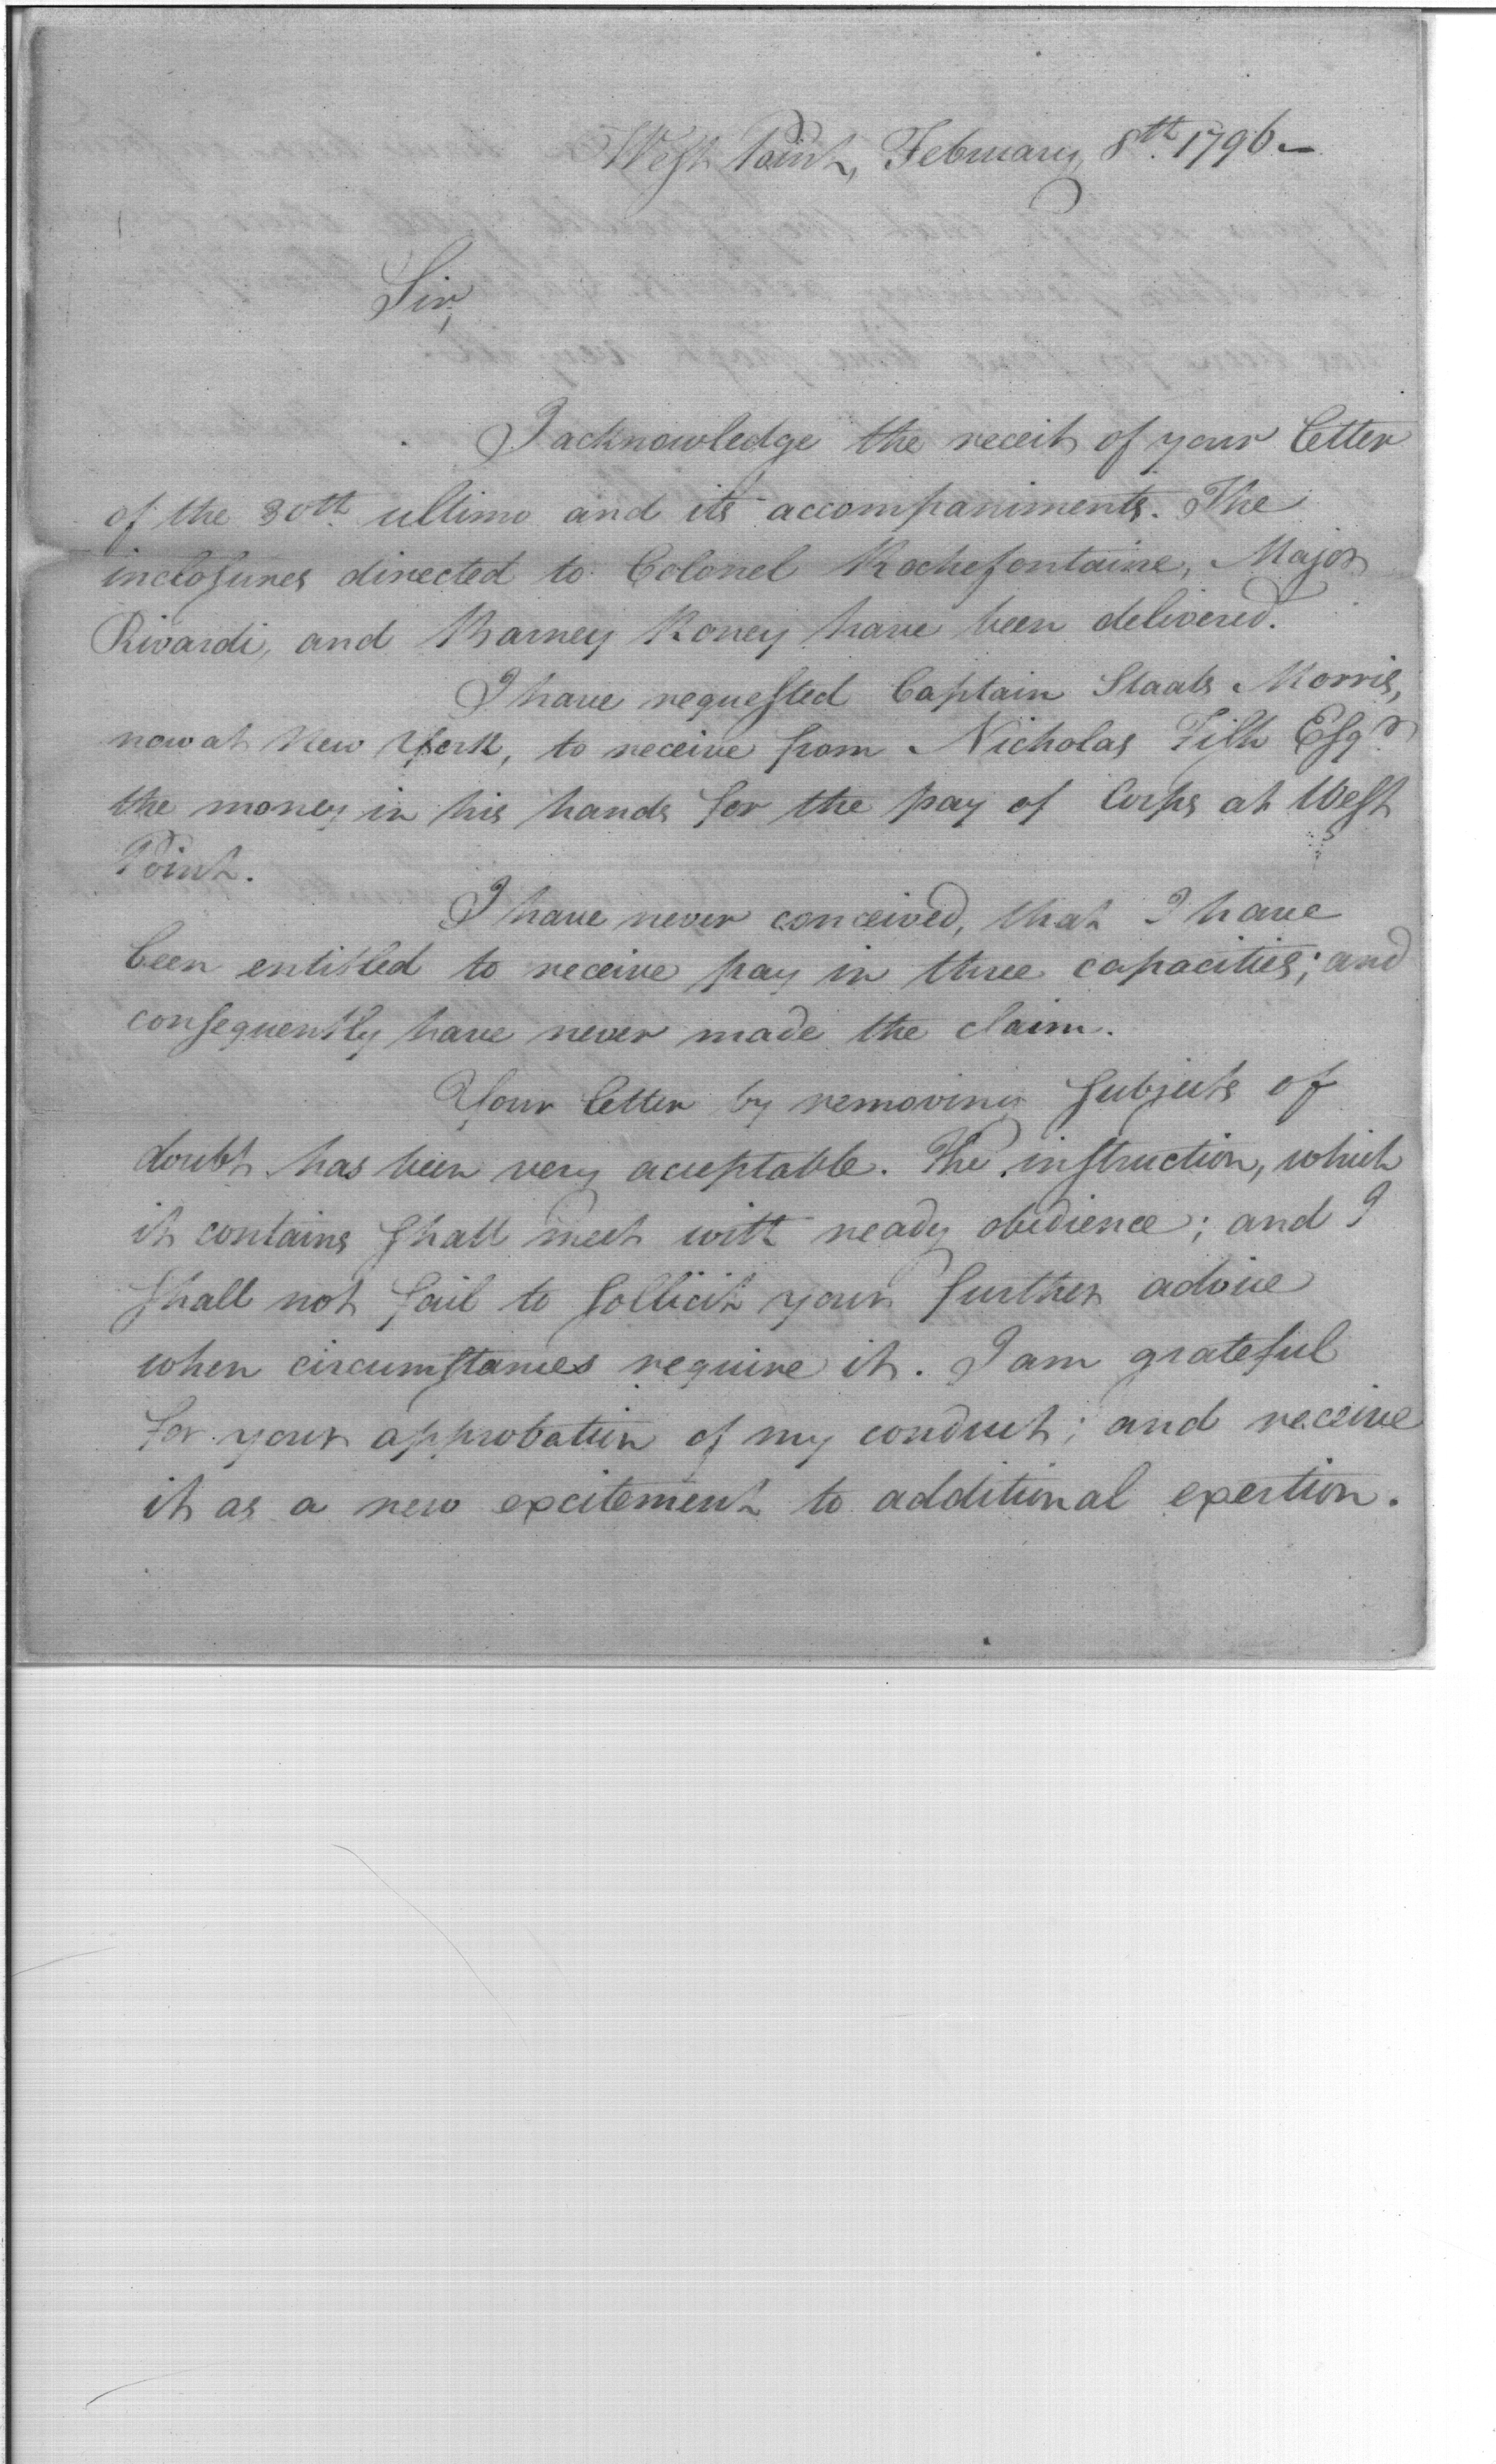 West Point, February 8th. 1796.—
Sir,
I acknowledge the receit of your letter
of the 30th. ultimo and its accompaniments. The
inclosures directed to Colonel Rochefontaine, Major
Rivardi, and Barney Roney have been delivered.
I have requested Captain Staats Morris,
now at New York, to receive from Nicholas Fish Esqr.
the money in his hands for the pay of Corps at West
Point.
I have never conceived, that I have
been entitled to receive pay in three capacities; and
consequently have never made the claim.
Your letter by removing subjects of
doubt has been very acceptable. The instruction, which
it contains shall meet with ready obedience; and I
shall not fail to sollicit your further advice
when circumstances require it. I am grateful
for your approbation of my conduct; and receive
it as a new excitement to additional exertion.